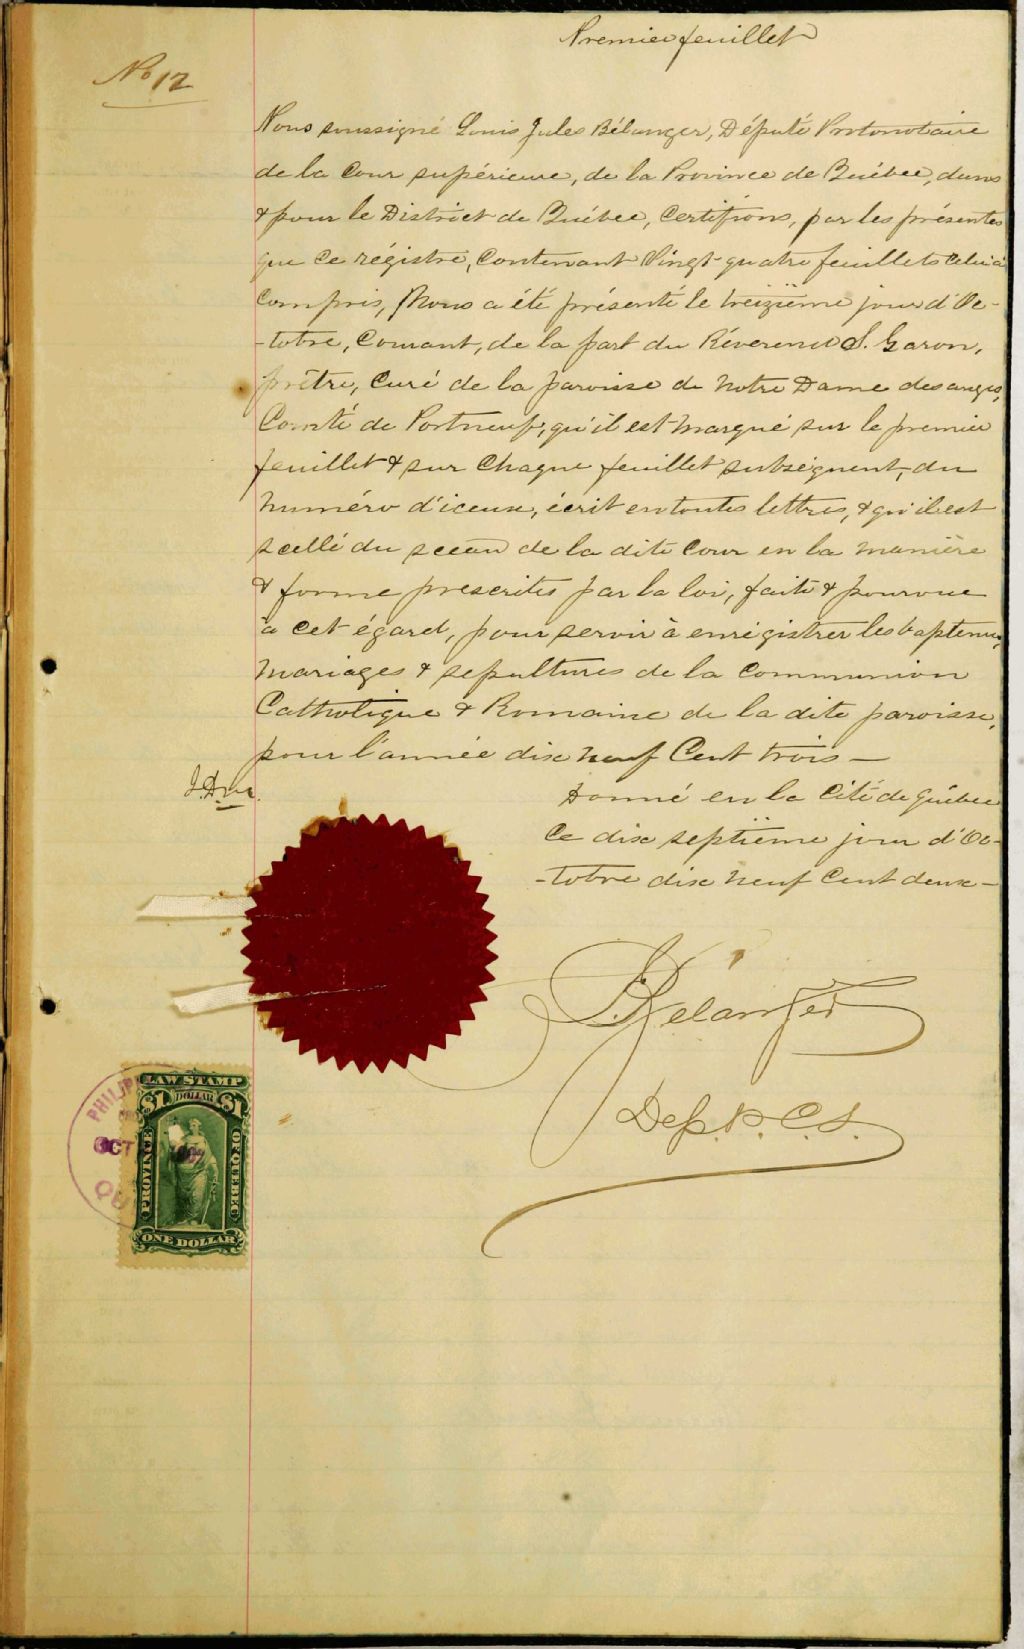 Premier feuillet
No 12
Nous soussigné Louis Jules Bélanger, Député Protonotaire
de la Cour supérieure, de la Province de Québec, dans
& pour le District de Québec, Certifions, par les présentes
que ce régistre, Contenant Vingt-quatre feuillets celui-ci
Compris, Nous a été présenté le treizième jour d'Oc-
-tobre, Courant, de la part du Réverend S. Garon,
prêtre, Curé de la paroisse de Notre Dame des anges,
Comté de Portneuf, qu'il est marqué sur le premier
feuillet & sur Chaque feuillet subséquent, du
Numéro d'iceux, écrit en toutes lettres, & qu'il est
scellé du sceau de la dite Cour en la manière
& forme prescrites par la loi, faite & pourvue
à cet égard, pour servir à enrégistrer les baptêmes,
Mariages & sépultures de la Communion
Catholique & Romaine de la dite paroisse,
pour l'année dix neuf Cent trois —
Donné en la Cité de Québec
Ce dix septième jour d'Oc-
-tobre dix neuf Cent deux —
Bélanger
Dep. P. C. S.
LAW STAMP
$1 DOLLAR $1
PROVINCE OF QUEBEC
ONE DOLLAR
OCT